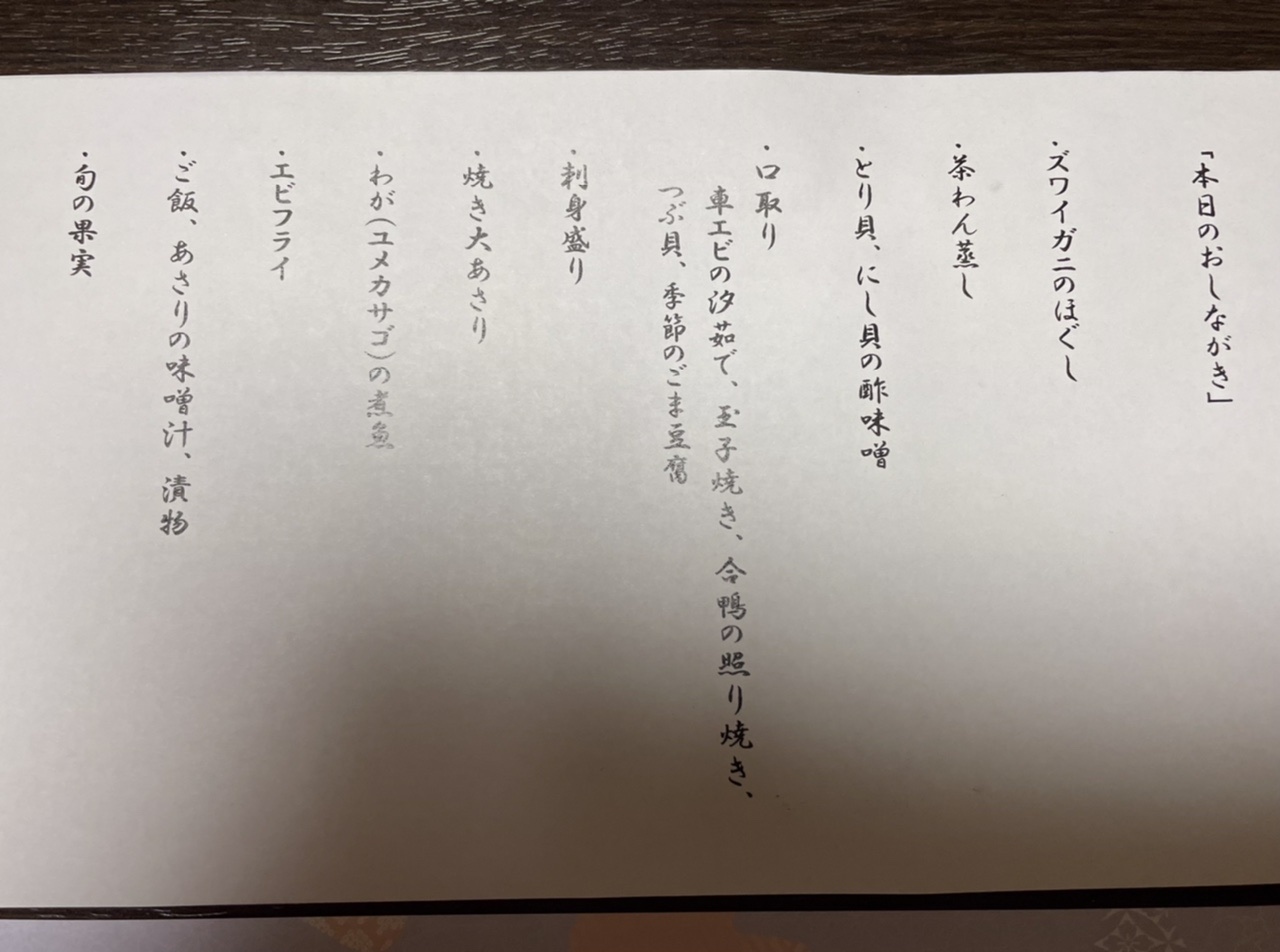 「本日のおしながき」
・ズワイガニのほぐし
・茶わん蒸し
・とり貝、にし貝の酢味噌
・口取り
車エビの汐茹で、玉子焼き、合鴨の照り焼き、
つぶ貝、季節のごま豆腐
・刺身盛り
・焼き大あさり
・わが(ユメカサゴ)の煮魚
・エビフライ
・ご飯、あさりの味噌汁、漬物
・旬の果実